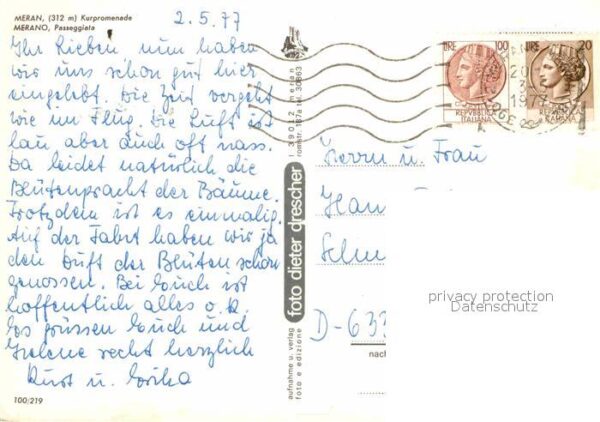 MERAN, (312 m) Kurpromenade
MERANO, Passeggiata
2.5.77
Ihr Lieben nun haben
wir uns schon gut hier
eingelebt. Die Zeit vergeht
wie im Flug. Die Luft ist
lau aber auch oft nass.
Da leidet natürlich die
Blütenpracht der Bäume.
Trotzdem ist es einmalig.
Auf der Fahrt haben wir ja
den Duft der Blüten schon
genossen. Bei Euch ist
hoffentlich alles o.k.
Es grüssen Euch und
recht herzlich
Kurt u. Erika
100/219
aufnahme u. verlag
foto e edizione
foto dieter drescher
I 39012 meran
romstr. 187a tel. 30863
LIRE 100
REPUBBLICA
ITALIANA
LIRE 20
ITALIANA
1977
Herrn u. Frau
D-633
nach
privacy protection
Datenschutz